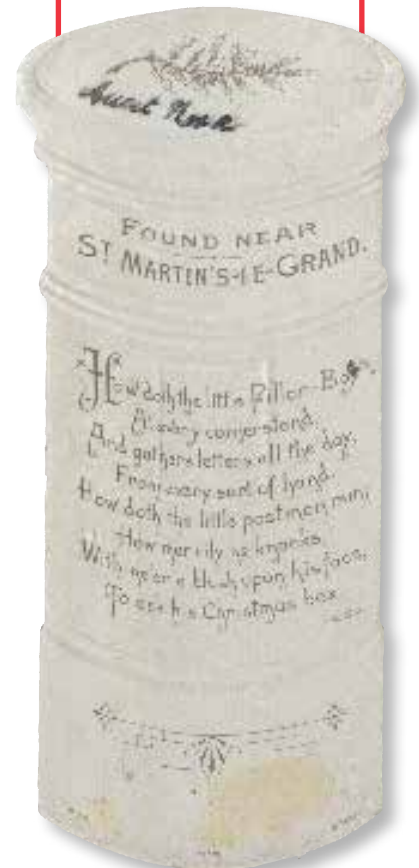 Aunt
FOUND NEAR
ST MARTIN'S-LE-GRAND.
How doth the little Pillar-Box,
At every corner stand,
And gathers letters all the day,
From every sort of hand.
How doth the little postman run,
How merrily he knocks
With ne'er a blush upon his face,
To his Christmas box